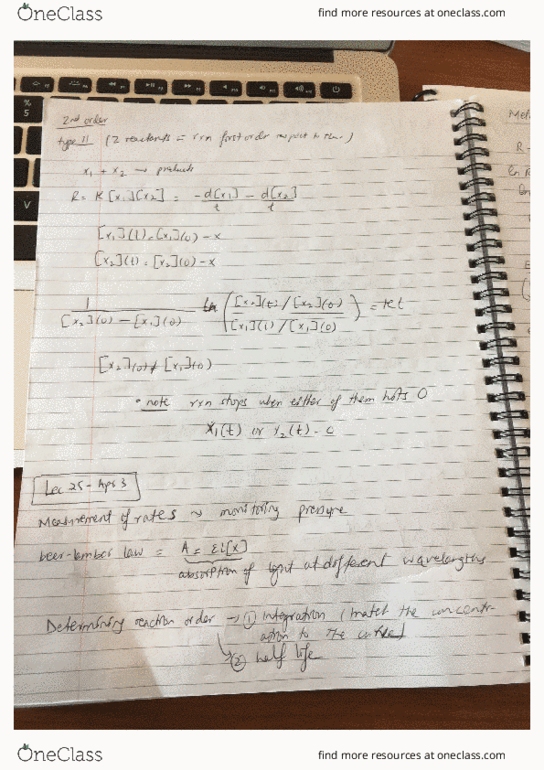 OneClass
find more resources at oneclass.com
2nd order
type II (2 reactants = rxn first order respect to)
x₁ + x₂ → products
R = K[x₁][x₂] = -d[x₁]/t - d[x₂]/t
[x₁](t) = [x₁](0) - x
[x₂](t) = [x₂](0) - x
1/([x₂](0) - [x₁](0)) ln ([x₂](t)/[x₂](0) / [x₁](t)/[x₁](0)) = kt
[x₂](0) ≠ [x₁](0)
• note rxn stops when either of them hits 0
x₁(t) or x₂(t) = 0
Lec 25 - Apr 3
Measurement of rates ~ monitoring pressure
beer-lamber law = A = εl[x]
absorption of light at different wavelengths
Determining reaction order → ① integration (match the concentr-
ation to the
② half life
OneClass
find more resources at oneclass.com